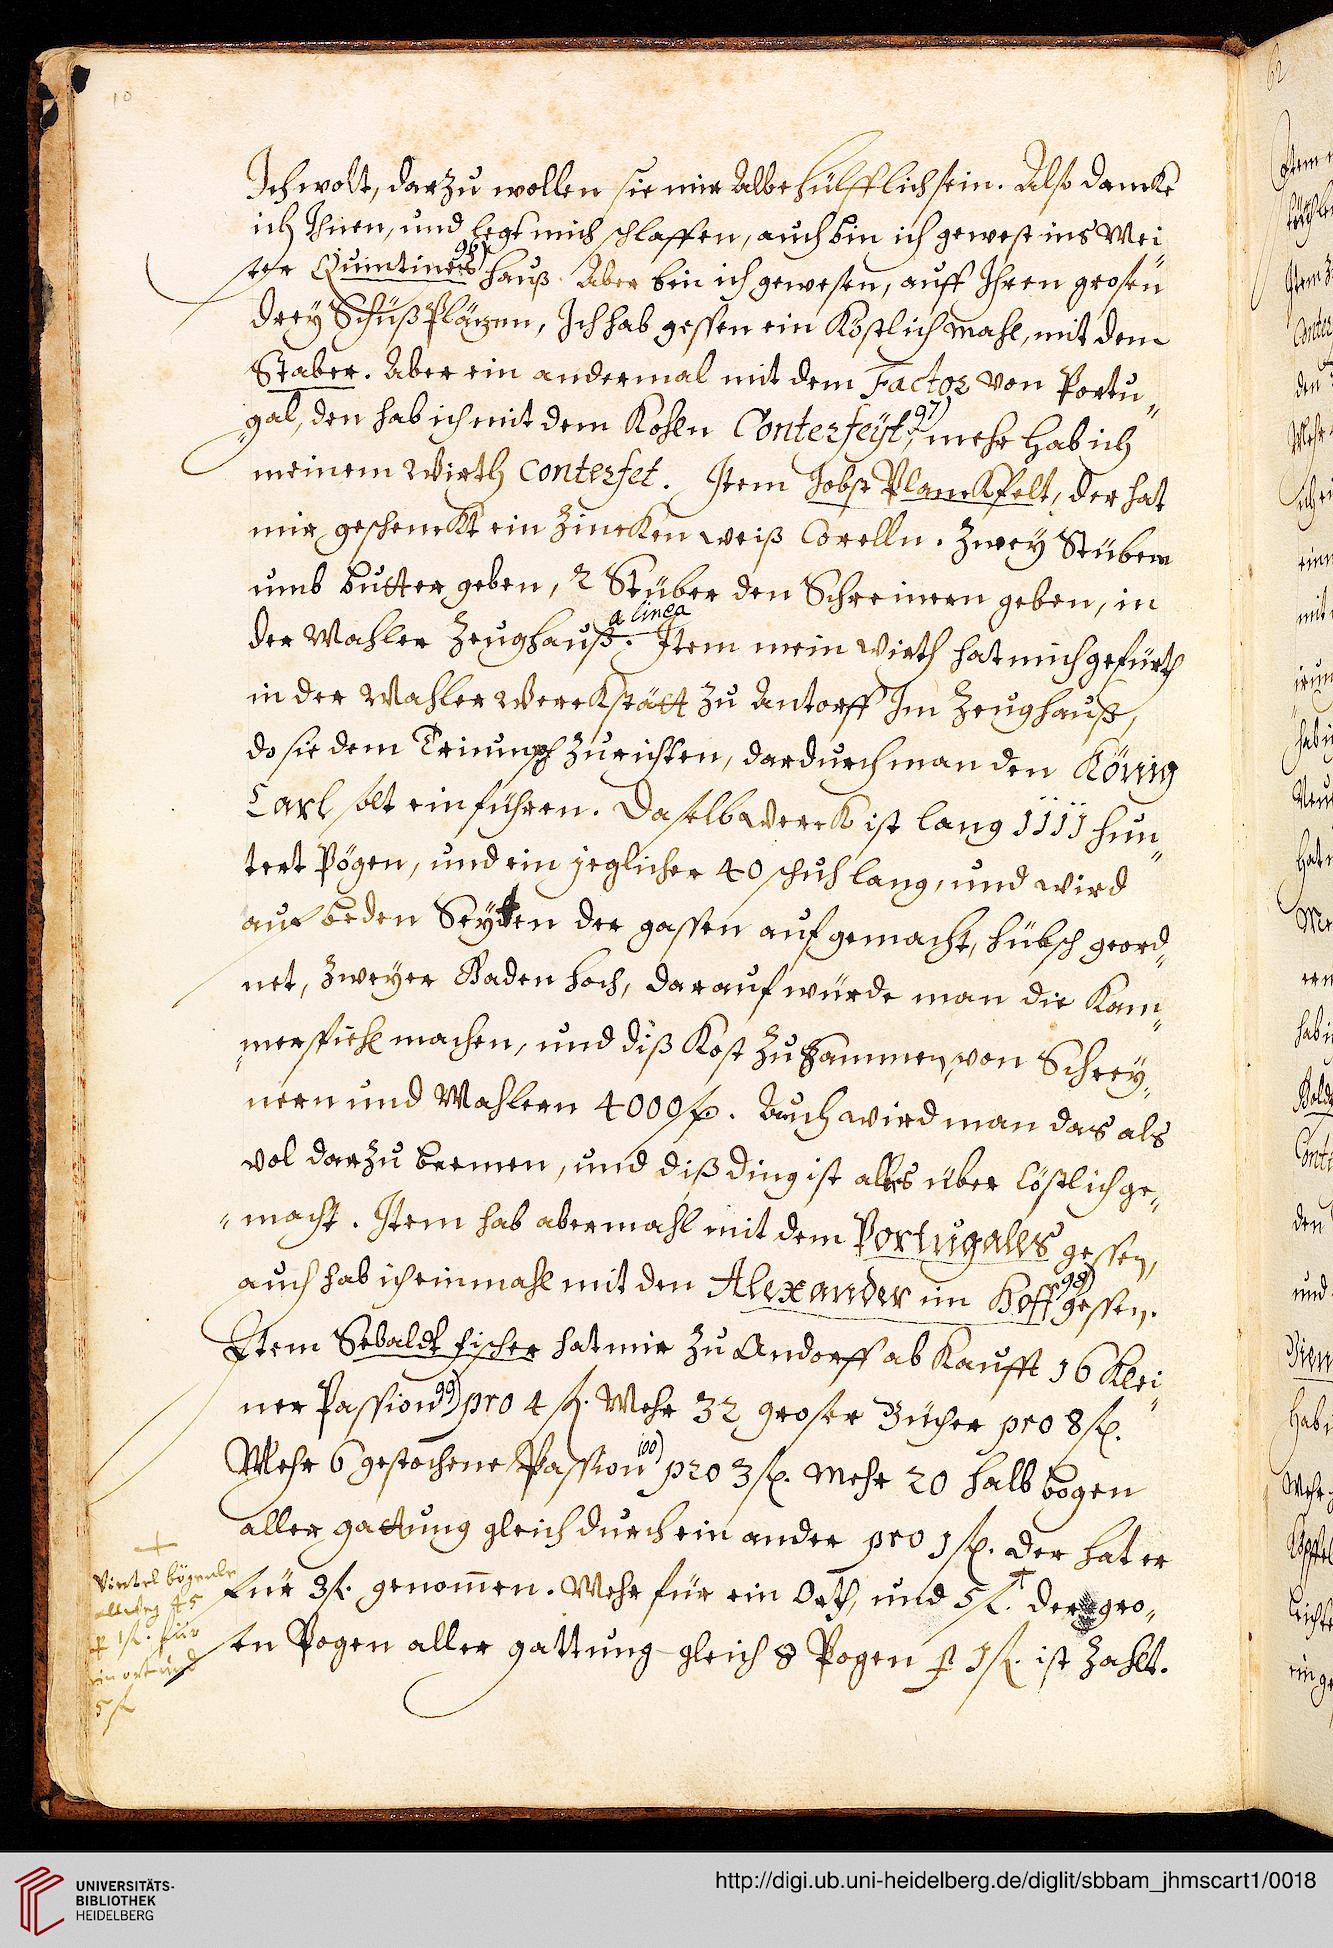 10
Ich wolt, darzu wollen sie mir Albe hülfflich sein. Also dancke
ich Ihnen, und legt mich schlaffen, auch bin ich gewest ins Mei„
ster Quintines 96) hauß. Aber bin ich gewesen, auff Ihren grosen
drey Schüß Pläzen, Ich hab gessen ein Köstlich mahl, mit dem
Staber. Aber ein andermal mit dem Factor von Portu„
„gal, den hab ich mit dem Kohln Conterfeyt, 97) mehr hab ich
meinem Wirth Conterfet. Item Jobst Planckfelt, der hat
mir geschenckt ein Zincken weiß Corelln. Zwey Stüber
umb butter geben, 2 Stüber den Schreinern geben, in
a linea
der Mahler Zeughauß. Item mein Wirth hat mich gefürth
in der Mahler Werckstätt zu Antorff Im Zeughauß,
do sie dem Triumph zurichten, dardurch man den König
Carl solt einführen. Daselb Werck ist lang jjjj hun„
tert Pögen, und ein jeglicher 40 schuh lang, und wird
auf beden Seyten der gassen auf gemacht, hübsch geord„
net, Zweyer Gaden hoch, darauf würde man die Kam„
„merspiehl machen, und diß Kost zu Sammen, von Schrey„
nern und Mahlern 4000 f. Auch wird man das als
vol darzu brennen, und diß ding ist alles über Cöstlich ge„
„macht. Item hab abermahl mit dem Portugales gessen,
auch hab ich einmahl mit den Alexander im Hoff 98) gessen.
Item Sebaldt Fischer hat mir zu Andorff ab Kaufft 16 Klei„
ner Passion 99) pro 4 fl. Mehr 32 groser Bücher pro 8 fl.
Mehr 6 gestochene Passion 100) pro 3 fl. Mehr 20 halb bogen
aller gattung gleich durch ein ander pro 1 fl. der hat er
für 3 fl. genom̄en. Mehr für ein Orth, und 5 fl. + der gro„
ten Pogen aller gattung gleich 8 Pogen p 1 fl. ist Zahlt.
+
Viertel bögenle
allweg 45
p 1 fl. für
ein ort und
5 fl
62
UNIVERSITÄTS-
BIBLIOTHEK
HEIDELBERG
http://digi.ub.uni-heidelberg.de/diglit/sbbam_jhmscart1/0018